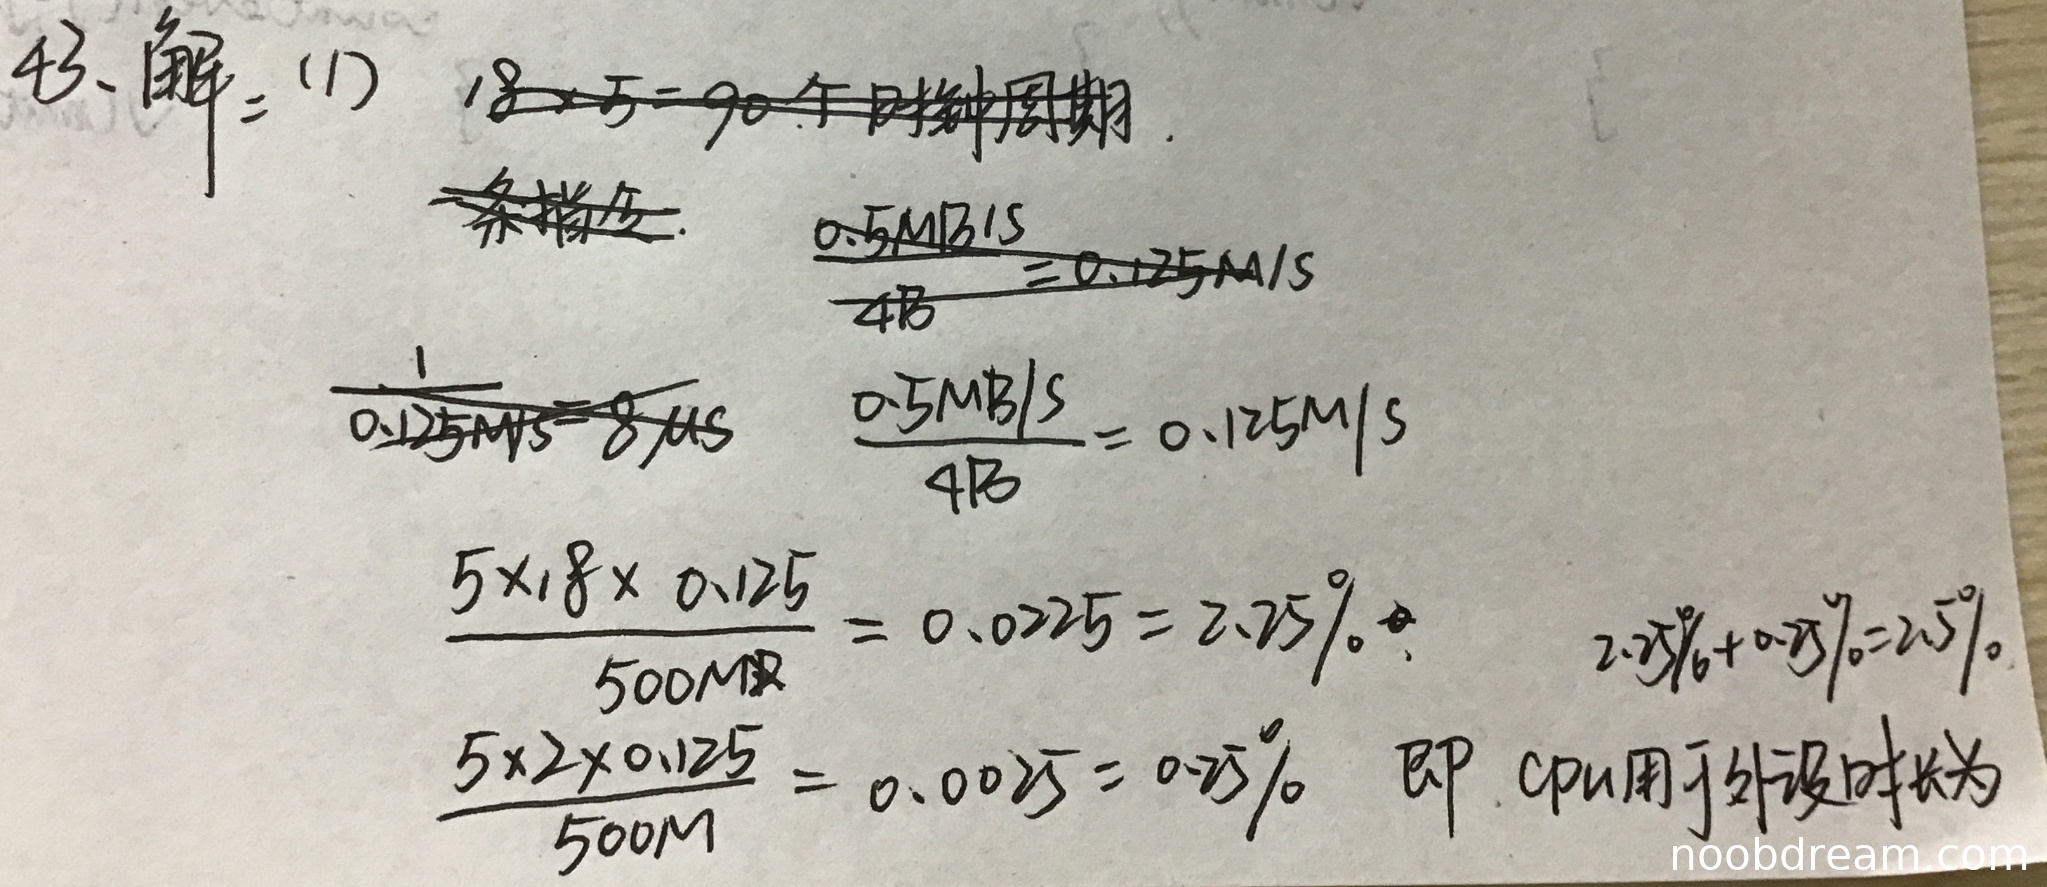 43、解：(1) 18×5=90个时钟周期.
一条指令.
0.5MB/S / 4B = 0.125M/S
1 / 0.125M/S = 8μS
0.5MB/S / 4B = 0.125M/S
5×18×0.125 / 500M = 0.0225 = 2.25%
2.25%+0.25%=2.5%.
5×2×0.125 / 500M = 0.0025 = 0.25% 即 CPU用于外设时长为
noobdream.com